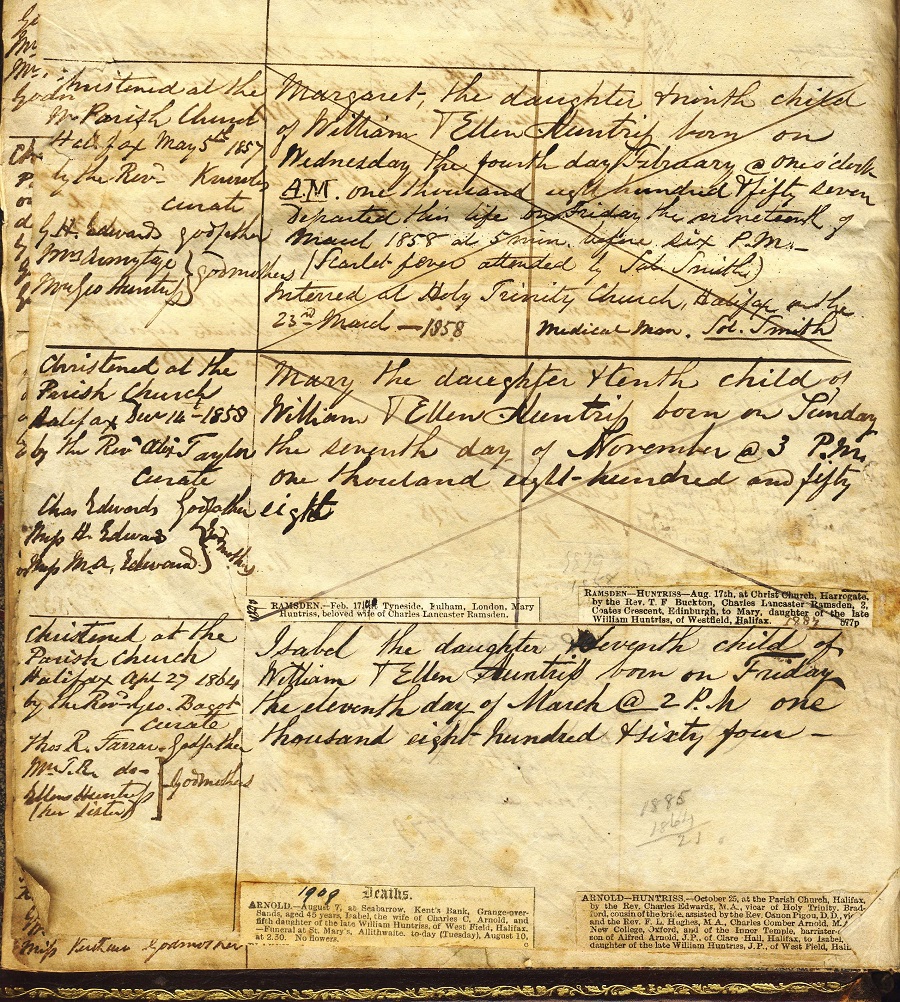 Christened at the
Parish Church
Halifax May 5th 1857
by the Revd Knowles
curate
G.H. Edwards godfather
Mrs Armytage
Mrs Geo Huntriss } godmothers
Margaret, the daughter & ninth child
of William & Ellen Huntriss born on
Wednesday the fourth day February @ one o'clock
A.M. one thousand eight hundred & fifty seven
departed this life on Friday the nineteenth of
March 1858 at 5 min. before six P.M.–
(Scarlet fever attended by Sol. Smith)
Interred at Holy Trinity Church, Halifax on the
23rd March – 1858 Medical Man. Sol. Smith
Christened at the
Parish Church
Halifax Decr 14th 1858
by the Revd Alexr Taylor
curate
Chas Edwards Godfather
Miss H. Edwards
Miss M.A. Edwards } Godmothers
Mary the daughter & tenth child of
William & Ellen Huntriss born on Sunday
the seventh day of November @ 3 P.M.
one thousand eight-hundred and fifty
eight
RAMSDEN.—Feb. 17, at Tyneside, Fulham, London, Mary
Huntriss, beloved wife of Charles Lancaster Ramsden.
RAMSDEN—HUNTRISS—Aug. 17th, at Christ Church, Harrogate,
by the Rev. T. F Buckton, Charles Lancaster Ramsden, 2,
Coates Crescent, Edinburgh, to Mary, daughter of the late
William Huntriss, of Westfield, Halifax. 1887 877p
Christened at the
Parish Church
Halifax Apl 27 1864
by the Revd Geo. Bagot
curate
Thos R. Farrar Godfather
Mrs T.R. do–
Ellen Huntriss } Godmothers
(her sister)
Isabel the daughter & Seventh child of
William & Ellen Huntriss born on Friday
the eleventh day of March @ 2 P.M one
thousand eight hundred & sixty four –
1885
1864
21
1909
Deaths.
ARNOLD.—August 7, at Seabarrow, Kent's Bank, Grange-over-
Sands, aged 45 years, Isabel, the wife of Charles C. Arnold, and
fifth daughter of the late William Huntriss, of West Field, Halifax.
—Funeral at St. Mary's, Allithwaite, to-day (Tuesday), August 10,
at 2.30. No flowers.
ARNOLD—HUNTRISS.—October 25, at the Parish Church, Halifax,
by the Rev. Charles Edwards, M.A., vicar of Holy Trinity, Brad-
ford, cousin of the bride, assisted by the Rev. Canon Pigou, D.D.,
and the Rev. F. L. Hughes, M.A., Charles Comber Arnold, M.A.
New College, Oxford, and of the Inner Temple, barrister
son of Alfred Arnold, J.P., of Clare Hall, Halifax, to Isabel,
daughter of the late William Huntriss, J.P., of West Field, Hali
Miss godmother